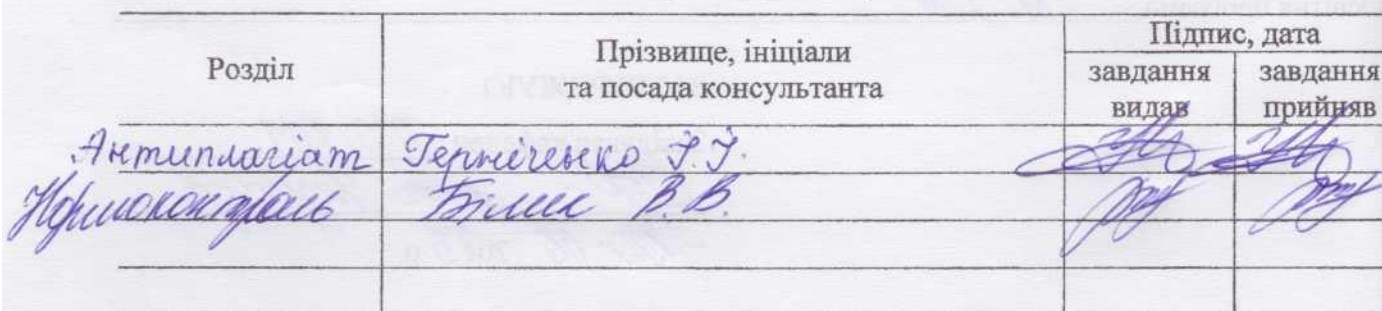 Розділ
Прізвище, ініціали
та посада консультанта
Підпис, дата
завдання
видав
завдання
прийняв
Антиплагіат
Нормоконтроль Білик В.В.